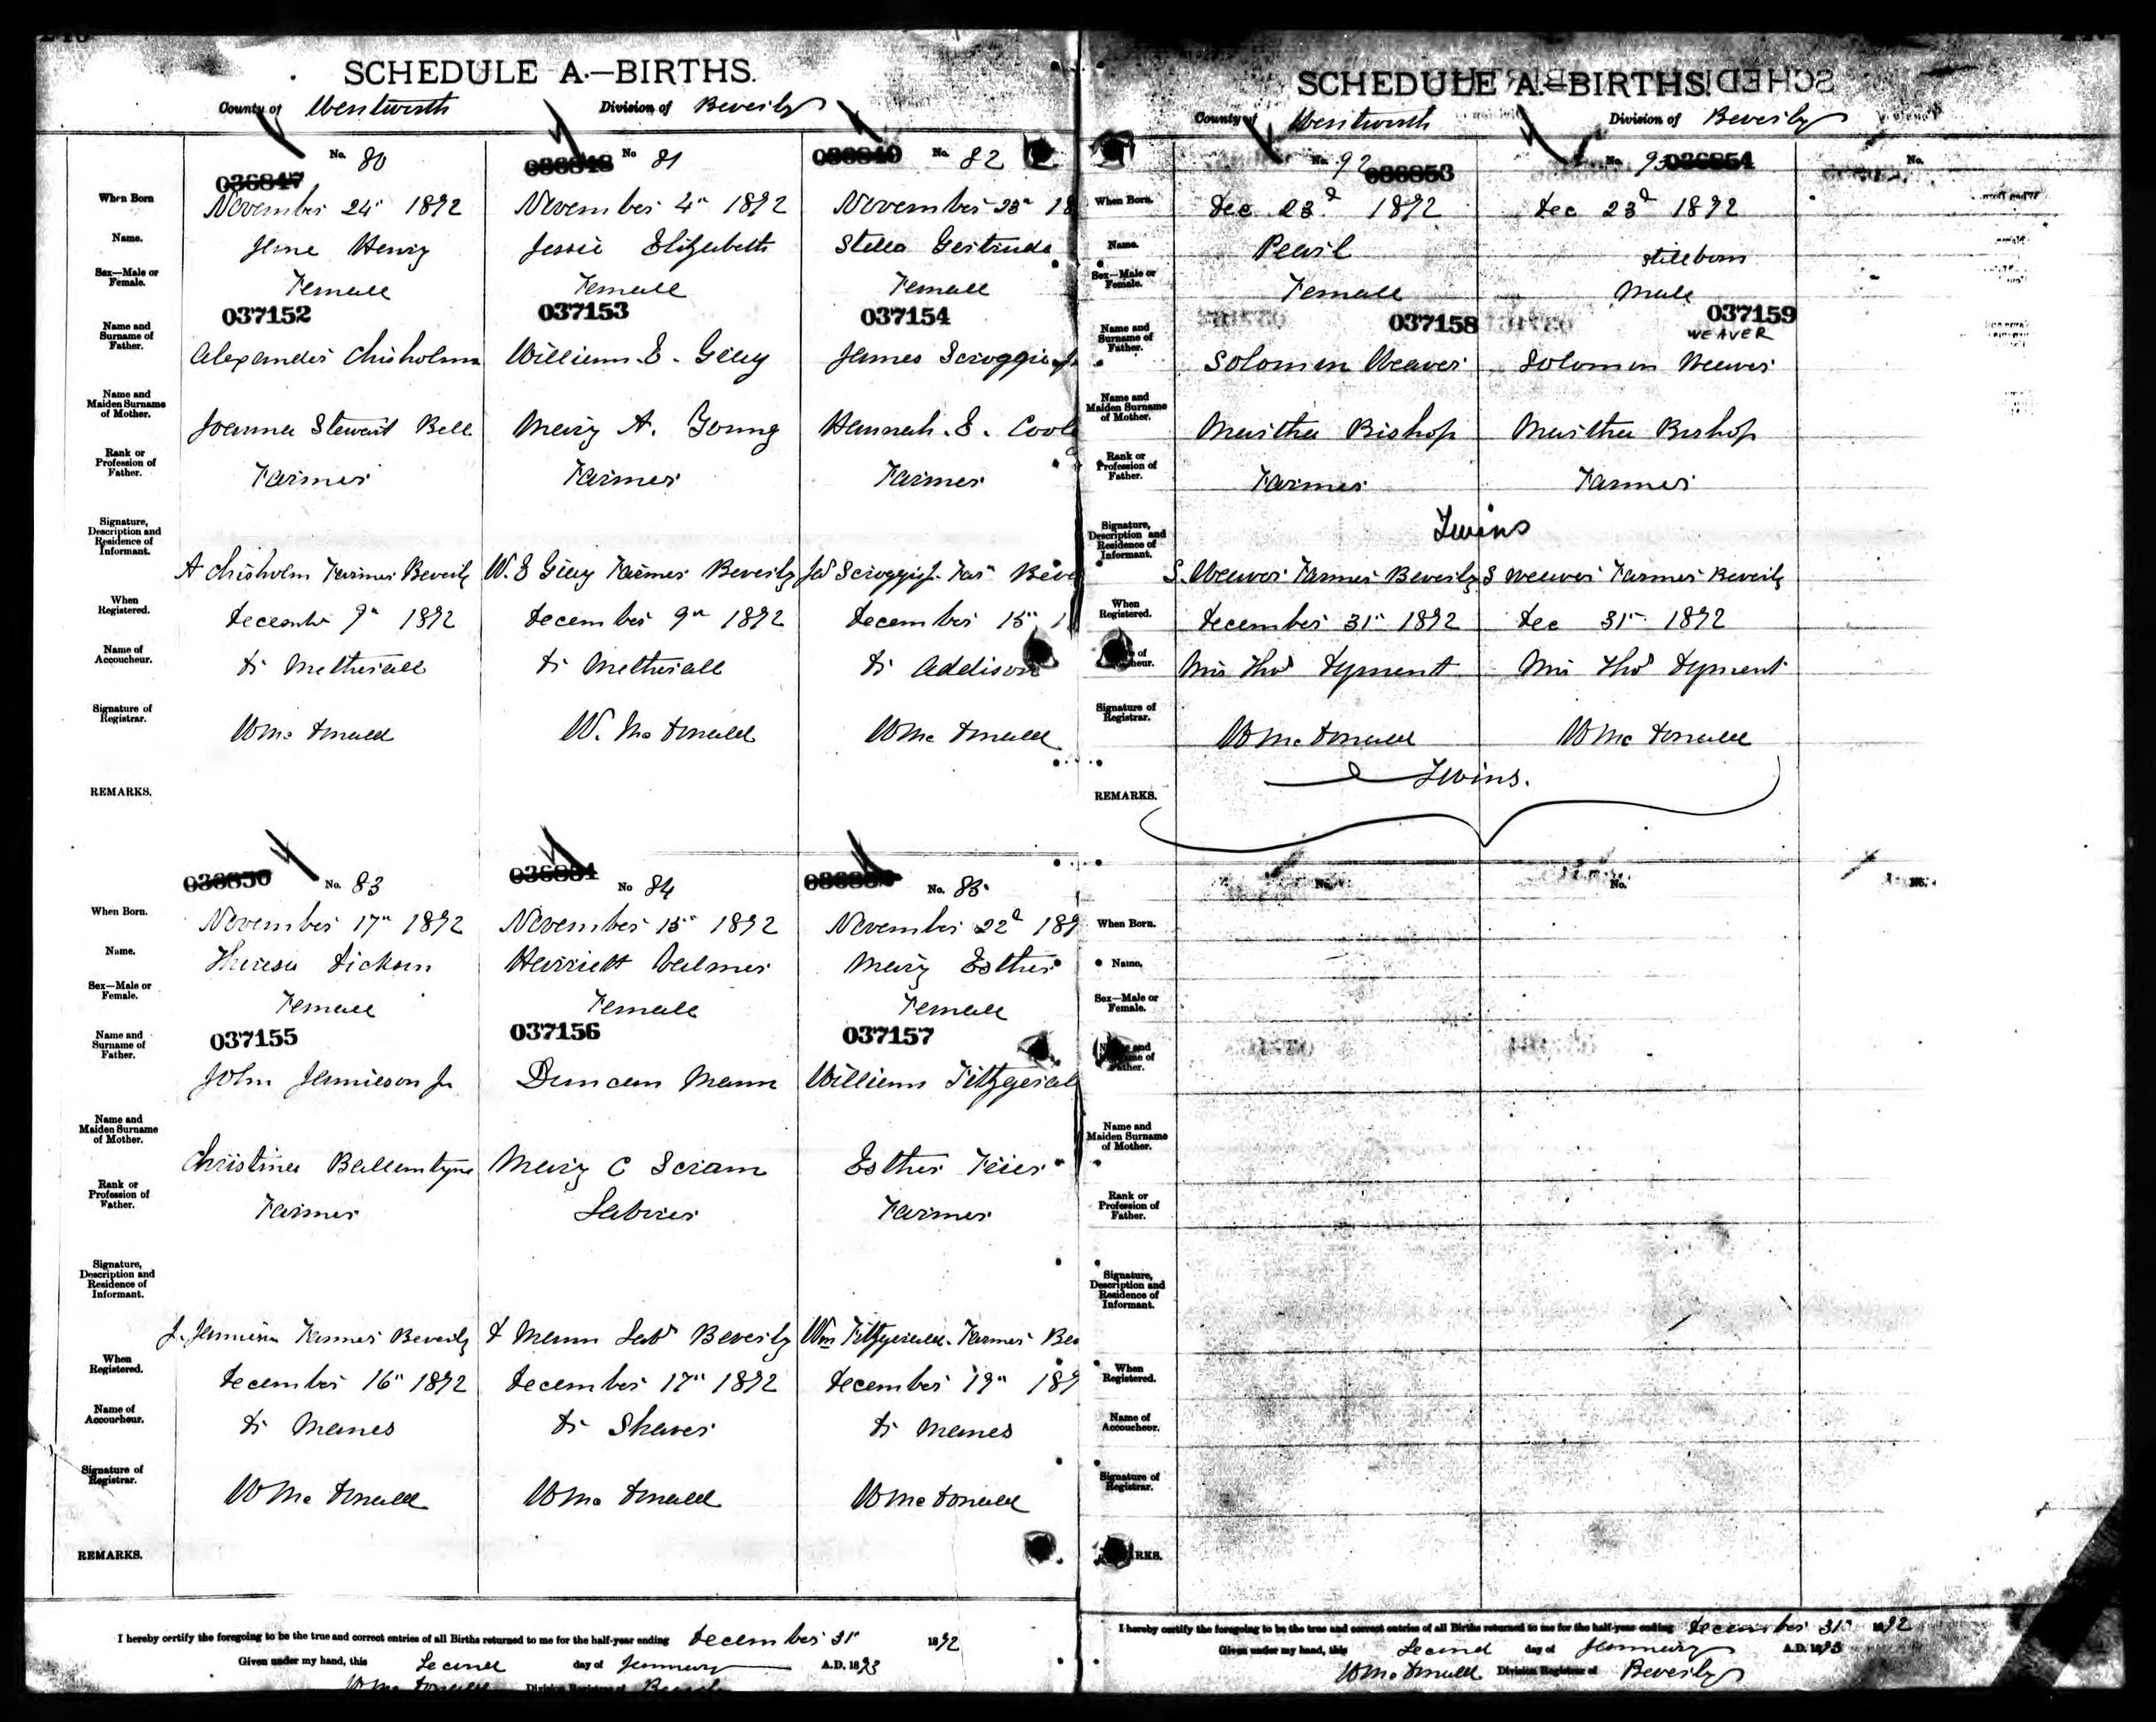 SCHEDULE A.—BIRTHS.
County of Wentworth Division of Beverly
036847 No. 80
036848 No 81
036849 No. 82
When Born November 24" 1892
November 4" 1892
November 23" 18
Name. Jane Henry
Jessie Elizabeth
Stella Gertrude
Sex—Male or Female. Female
Female
Female
037152
037153
037154
Name and Surname of Father. Alexander Chisholm
William. E.
James Scroggie Jr
Name and Maiden Surname of Mother. Joanna Stewart Bell
Mary A. Young
Hannah. E.
Rank or Profession of Father. Farmer
Farmer
Farmer
Signature, Description and Residence of Informant.
A Chisholm Farmer Beverly
W. E Farmer Beverly
Jas Scroggie Jr. Far Beve
When Registered. December 9" 1892
December 9" 1892
December 15" 1
Name of Accoucheur. Dr Metherall
Dr Metherall
Dr Addison
Signature of Registrar. W Mc Donald
W. Mc Donald
W Mc Donald
REMARKS.
036850 No. 83
036851 No 84
No. 85
When Born. November 17" 1892
November 15" 1892
November 22d 189
Name. Theresa Dickson
Harriett Palmer
Mary Esther
Sex—Male or Female. Female
Female
Female
037155
037156
037157
Name and Surname of Father. John Jamieson Jr
Duncan Mann
William Fitzgeral
Name and Maiden Surname of Mother. Christina Ballantyne
Mary C Scram
Esther Frier
Rank or Profession of Father. Farmer
Laborer
Farmer
Signature, Description and Residence of Informant.
J. Jamieson Farmer Beverly
D Mann Labr Beverly
Wm Fitzgerald. Farmer Bev
When Registered. December 16" 1892
December 17" 1892
December 19" 189
Name of Accoucheur. Dr Manes
Dr Shaver
Dr Manes
Signature of Registrar. W Mc Donald
W Mc Donald
W Mc Donald
REMARKS.
I hereby certify the foregoing to be the true and correct entries of all Births returned to me for the half-year ending December 31" 1892
Given under my hand, this Second day of January A.D. 1893
W Mc Donald Division Registrar of Beverly
SCHEDULE A.—BIRTHS.
County of Wentworth Division of Beverly
No. 92 036853
No. 93 036854
No.
When Born. Dec 23d 1892
Dec 23d 1892
Name. Pearl
stillborn
Sex—Male or Female. Female
Male
037158
037159
WEAVER
Name and Surname of Father. Solomon Weaver
Solomon Weaver
Name and Maiden Surname of Mother. Martha Bishop
Martha Bishop
Rank or Profession of Father. Farmer
Farmer
Twins
Signature, Description and Residence of Informant.
S. Weaver Farmer Beverly
S Weaver Farmer Beverly
When Registered. December 31" 1892
Dec 31" 1892
Name of Accoucheur. Mrs Thos Dyment
Mrs Thos Dyment
Signature of Registrar. W Mc Donald
W Mc Donald
Twins.
REMARKS.
No.
No.
No.
When Born.
Name.
Sex—Male or Female.
Name and Surname of Father.
Name and Maiden Surname of Mother.
Rank or Profession of Father.
Signature, Description and Residence of Informant.
When Registered.
Name of Accoucheur.
Signature of Registrar.
REMARKS.
I hereby certify the foregoing to be the true and correct entries of all Births returned to me for the half-year ending December 31" 1892
Given under my hand, this Second day of January A.D. 1893
W Mc Donald Division Registrar of Beverly